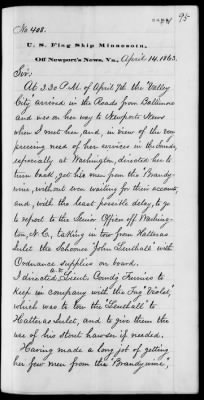 95
No. 408.
U. S. Flag Ship Minnesota,
Off Newport's News, Va., April 14, 1863.
Sir:
At 3.30 P.M. of April 9th the "Valley
City" arrived in the Roads from Baltimore
and was on her way to Newports News
when I met her, and, in view of the very
pressing need of her services in the Sounds,
especially at Washington, directed her to
turn back, get his men from the "Brandy-
wine, without even waiting for their accounts,
and, with the least possible delay, to go
to report to the Senior Officer off Washing-
ton, N.C., taking in tow from Hatteras
Inlet the Schooner "John Lenthall" with
Ordnance supplies on board.
I directed Lieut. Comdg Furniss to
keep in company with the Tug "Violet,"
which was to tow the "Lenthall" to
Hatteras Inlet, and to give them the
use of his stout hawser if needed.
Having made a long job of getting
her few men from the "Brandywine",